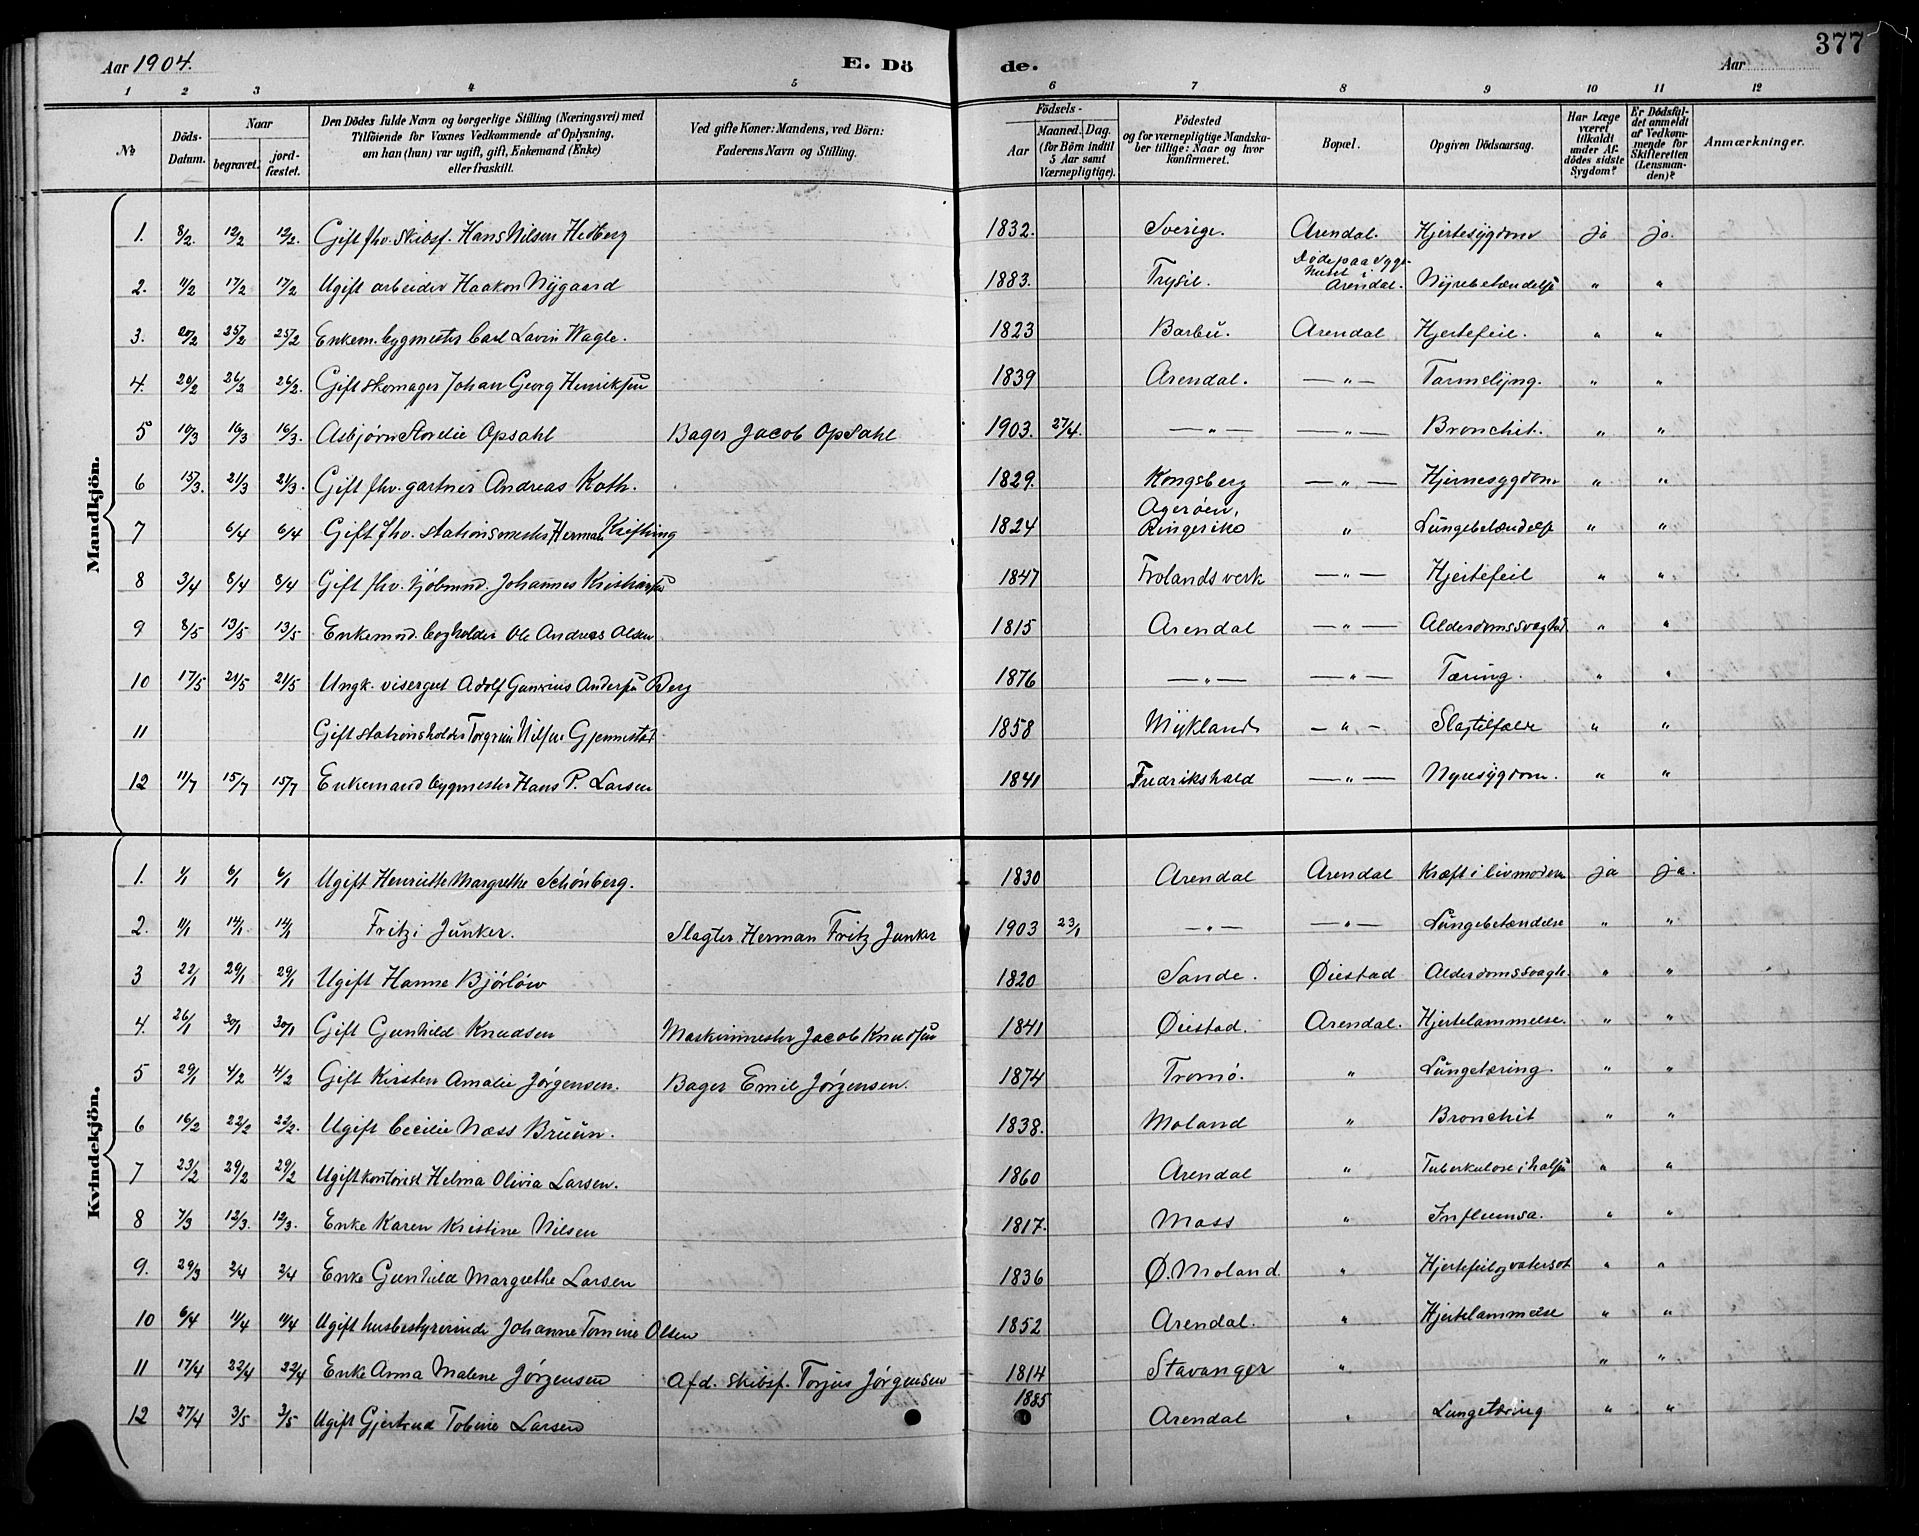 Aar 1904. E. Dö de. Aar 377
1 2 3 4 5 6 7 8 9 10 11 12
No
Döds-Datum.
Naar
begravet.
jordfæstet.
Den Dödes fulde Navn og borgerlige Stilling (Næringsvei) med
Tilföiende for Voxnes Vedkommende af Oplysning.
om han (hun) var ugift, gift, Enkemand (Enke)
eller fraskilt.
Ved gifte Koner: Mandens, ved Börn:
Faderens Navn og Stilling.
Födsels-
Aar
Maaned. Dag.
(for Börn indtil
5 Aar samt
Værnepligtige).
Födested
og for værnepligtige Mandska-
ber tillige: Naar og hvor
Konfirmeret.
Bopæl.
Opgiven Dödsaarsag.
Har Læge
været
tilkaldt
under Af-
dödes sidste
Sygdom?
Er Dödsfal-
det anmeldt
af Vedkom-
mende for
Skifteretten
(Lensman-
den)?
Anmærkninger.
Mandkjön.
1. 8/2. 12/2 12/2. Gift fhv. Skibsf. Hans Nilsen Hedberg 1832. Sverige. Arendal. Hjertesygdom ja ja.
2. 11/2 17/2 17/2 Ugift arbeider Haakon Nygaard 1883. Trysil. Døde paa syge-
huset i
Arendal. Nyrebetændelse " "
3. 20/2 25/2 25/2 Enkem. bygmester Carl Lavin Wagle. 1823 Barbu. Arendal Hjertefeil. " "
4. 20/2 26/2 26/2. Gift skomager Johan Georg Henriksen 1839 Arendal. — " — Tarmslyng. " "
5 10/3 16/3 16/3. Asbjørn Storlie Opsahl Bager Jacob Opsahl 1903. 27/4. — " — — " — Bronchit. " "
6 15/3. 21/3 21/3. Gift fhv. gartner Andreas Koth. 1829. Kongsberg — " — Hjernesygdom " "
7 6/4 6/4 Gift fhv. stationsmester Herman Kiefting 1824 Agerøen,
Ringerike " Lungebetændelse " "
8 3/4 8/4 8/4 Gift fhv. kjøbmnd. Johannes Kristiansen 1847 Frolands verk — " — Hjertefeil " "
9 8/5 13/5 13/5 Enkemnd. bogholder Ole Andreas Olsen 1815 Arendal — " — Alderdomssvaghed " "
10 17/5 21/5 21/5 Ungk. visergut Adolf Gunerius Andersen Berg 1876 — " — — " — Tæring. " "
11 Gift stationsholder Torgrim Nilsen Gjennestad 1858 Mykland — " — Slagtilfælde " "
12 11/7 15/7 15/7 Enkemand bygmester Hans P. Larsen 1841 Fredrikshald — " — Nyresygdom. " "
Kvindekjön.
1. 1/1 6/1 6/1 Ugift Henriette Margrethe Schönberg. 1830 Arendal Arendal Kræft i livmoderen ja ja.
2. 11/1 14/1 14/1 Fritzi Junker. Slagter Herman Fritz Junker 1903 23/1 — " — — " — Lungebetændelse " "
3 22/1 29/1 29/1 Ugift Hanne Bjørløw 1820 Sande. Øiestad Alderdomssvaghe. " "
4. 26/1 30/1 30/1 Gift Gunhild Knudsen Maskinmester Jacob Knudsen 1841 Øiestad. Arendal. Hjertelammelse. " "
5 29/1 4/2 4/2 Gift Kirsten Amalie Jørgensen. Bager Emil Jørgensen. 1874 Tromø. " Lungetæring. " "
6 16/2 22/2 22/2. Ugift Cecilie Næss Bruun. 1838. Moland " Bronchit " "
7 23/2 29/2 29/2 Ugift kontorist Helma Olivia Larsen. 1860 Arendal " Tuberkulose i halsen " "
8 7/3 12/3. 12/3. Enke Karen Kristine Nilsen 1817. Moss " Influensa. " "
9. 29/3 2/4 2/4 Enke Gunhild Margrethe Larsen 1836 Ø. Moland. " Hjertefeil og vatersot " "
10 6/4 11/4 11/4 Ugift husbestyrerinde Johanne Tomine Olsen 1852 Arendal. " Hjertelammelse " "
11 17/4 22/4 22/4 Enke Anna Malene Jørgensen Afd. skibsf. Torjus Jørgensen 1814 Stavanger " " "
12 27/4 3/5 3/5 Ugift Gjertrud Tobine Larsen 1885 Arendal " Lungetæring " "